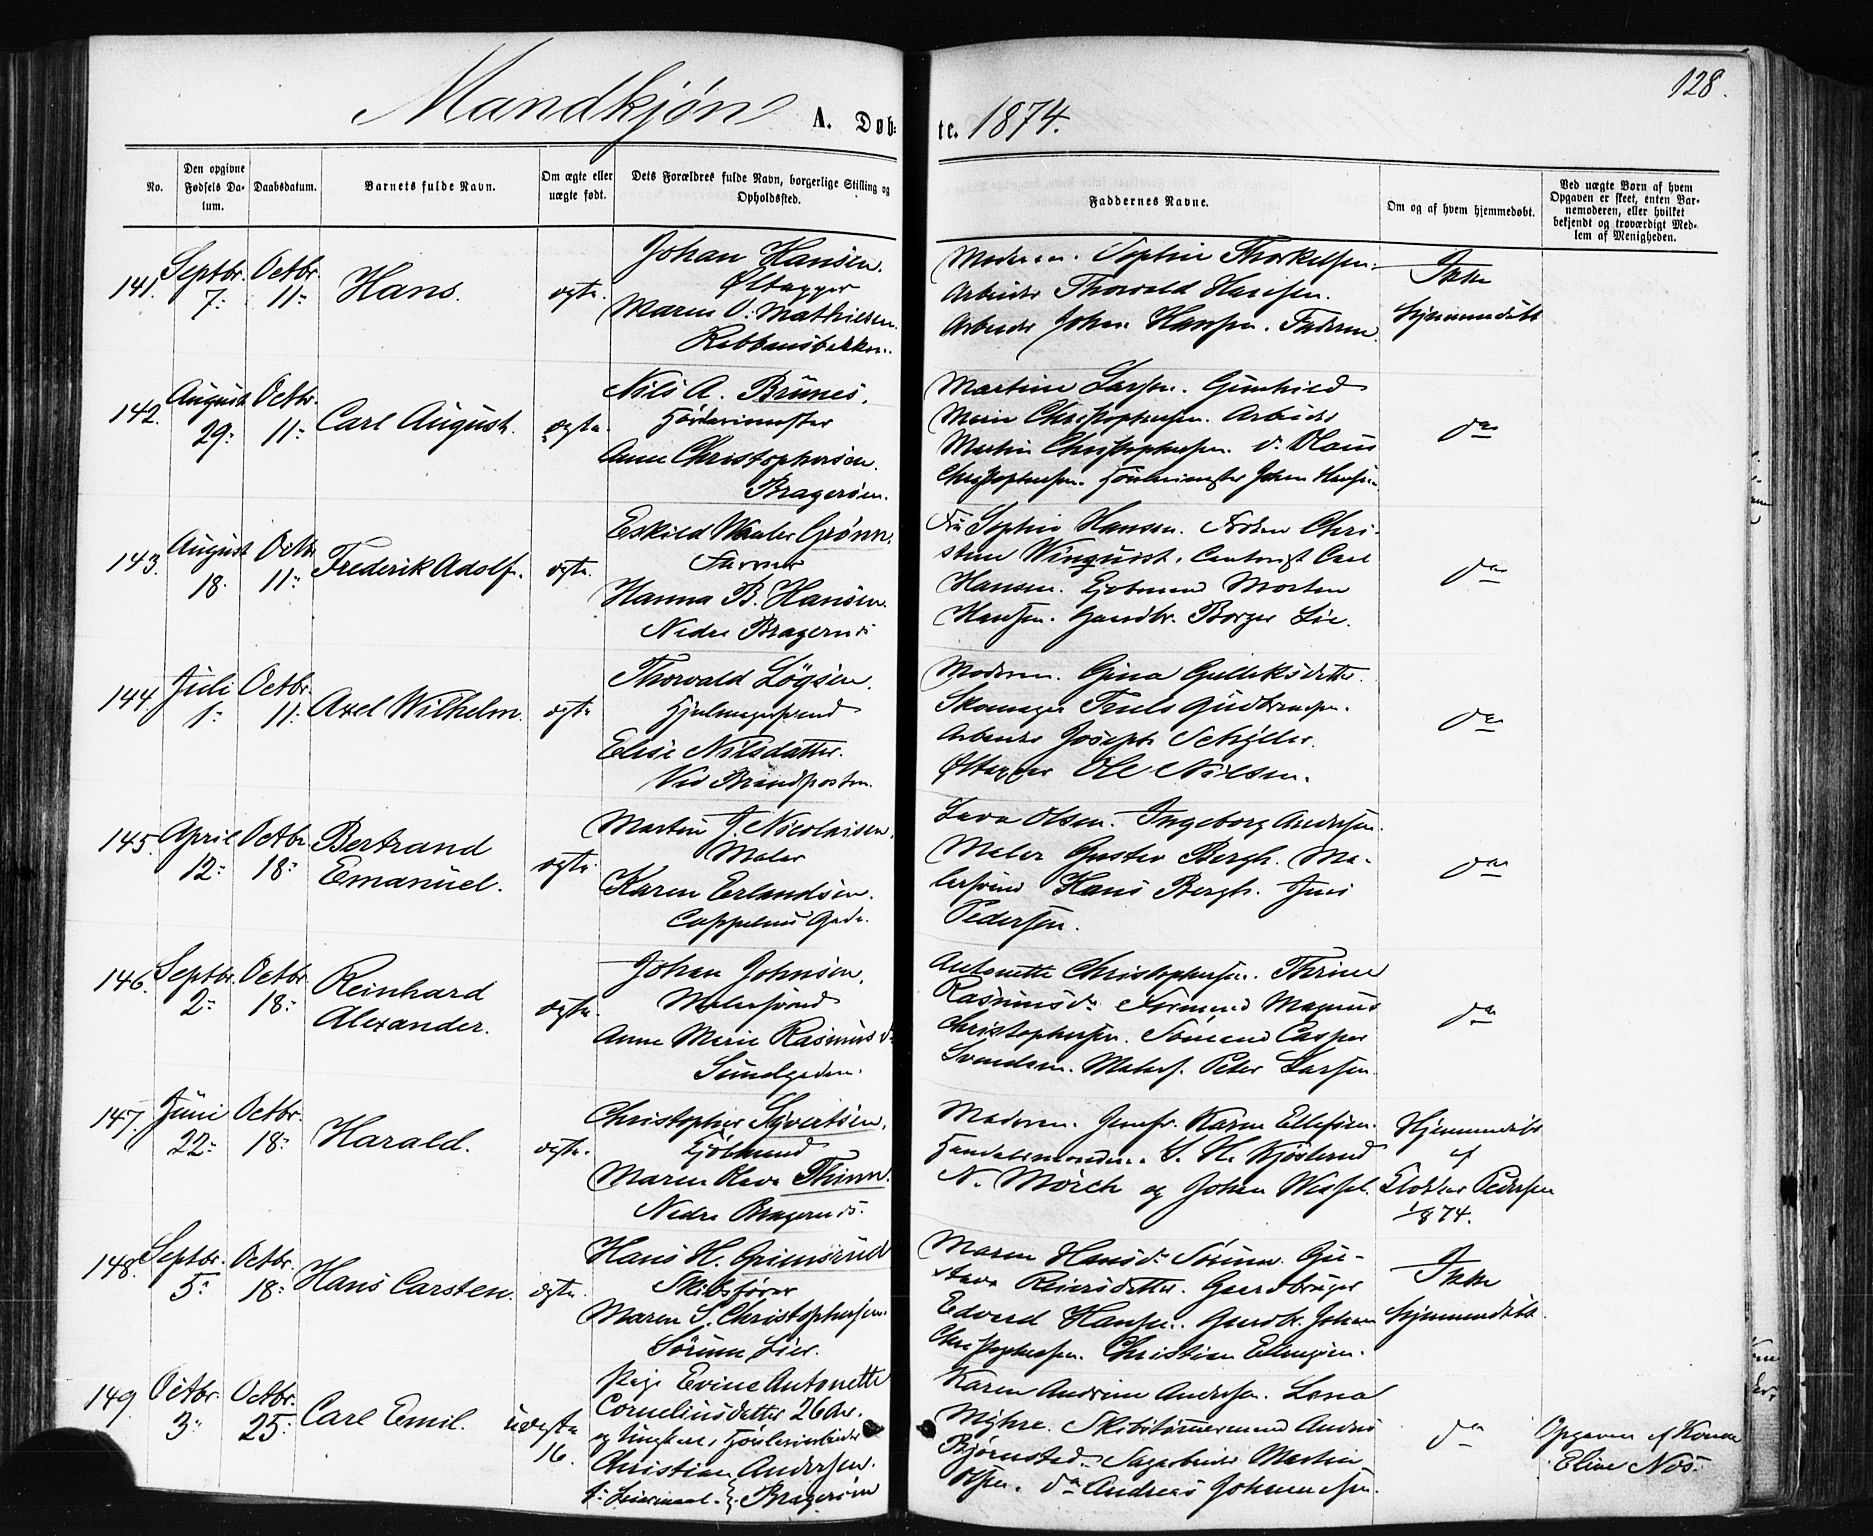 128.
Mandkjøn A. Døb-
te. 1874.
No.
Den opgivne
Fødsels Da-
tum.
Daabsdatum.
Barnets fulde Navn.
Om ægte eller
uægte født.
Dets Forældres fulde Navn, borgerlige Stilling og
Opholdssted.
Faddernes Navne.
Om og af hvem hjemmedøbt.
Ved uægte Børn af hvem
Opgaven er skeet, enten Bar-
nemoderen, eller hvilket
bekjendt og troværdigt Med-
lem af Menigheden.
141. Septbr. 7: Octbr. 11: Hans. ægte.
Johan Hansen.
Øltapper
Maren O. Mathisen.
Moderen. Sophie Thorkelsen.
Arbeider Thorvald Hansen.
Arbeider Johan Hansen. Faderen
Ikke
hjemmedøbt
142. August 29: Octbr. 11: Carl August. ægte.
Nils A. Brunes.
Anne Christophersen.
Bragerøen.
Martine Larsen. Gunhild
Marie Christophersen. Arbeider
Martin Christophersen. do Olaus
Christophersen. Johan Hansen
do
143. August 18. Octbr. 11: Frederik Adolf. ægte.
Eskild Waaler Grønn.
Farver
Hanna B. Hansen.
Nedre Bragernes
Fru Sophie Hansen. Frøken Chri-
stine Winquist. Contorist Carl
Hansen. Kjøbmand Morten
Hansen. Gaardbr. Borger Lie.
do
144. Juli 1: Octbr. 11: Axel Wilhelm. ægte
Thorvald Løgsen.
Hjulmagersvend
Elise Nilsdatter.
Ved Brandposten.
Moderen. Gina Gulliksdatter.
Skomager Truls Gudbrandsen.
Arbeider Joseph Schyller.
Øltapper Ole Nilsen.
do
145. April 12: Octbr. 18: Bertrand
Emanuel. ægte.
Martin J. Nicolaisen.
Maler
Karen Erlandsen.
Cappelens Gade.
Lava Olsen. Ingeborg Andersen.
Maler Gustav Bergh. Ma-
lersvend Hans Bergh. Jens
Pedersen.
do
146. Septbr. 2: Octbr. 18: Reinhard
Alexander. ægte.
Johan Johnsen.
Malersvend
Anne Marie Rasmusd.
Sundgaden.
Antonette Christophersen. Thrine
Rasmusdr. Formand Magnus
Christophersen. Sømand Casper
Svendsen. Malers. Peter Larsen.
do
147. Juni 22: Octbr. 18: Harald. ægte.
Christopher Syvertsen.
Kjøbmand
Maren Lava Thinn.
Nedre Bragernes.
Moderen. Jomfr. Karen Ellefsen.
Handelsmændene S. H. Kjøsterud
N. Mørch og Johan Wessel.
Hjemmedøbt
af
Klokker Pedersen
1874.
148. Septbr. 5: Octbr. 18: Hans Carsten. ægte.
Hans H. Grimsrud
Skibsfører
Maren S. Christophersen.
Sørum, Lier.
Maren Hansdr Sørum. Gu-
stava Reiersdatter. Gaardbruger
Edvard Hansen. Gaardbr. Johan
Christophersen. Christian Ellingsen.
Ikke
hjemmedøbt.
149. Octbr. 3: Octbr. 25: Carl Emil. uægte
16.
Pige Evine Antonette
Corneliusdatter 26 Aar.
og Ungkarl,
Christian Andersen.
Bragerøen
Karen Andrine Andersen. Lena
Myhre. Skibstømmermand Anders
Bjørnstad. Sagarbeider Martin
Olsen. do Andreas Johannesen.
do
Opgaven af Kone
Eline Næs.